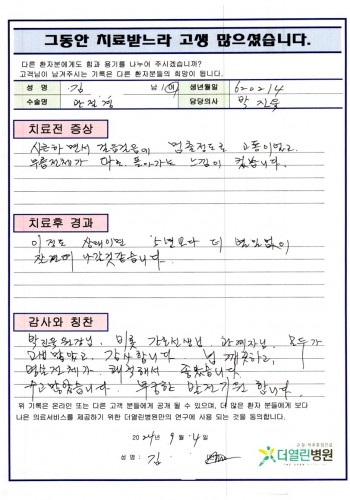 그동안 치료받느라 고생 많으셨습니다.
다른 환자분에게도 힘과 용기를 나누어 주시겠습니까?
고객님이 남겨주시는 기록은 다른 환자분들의 희망이 됩니다.
성 명 김 남 / 여 생년월일 620214
수술명 담당의사 박진욱
치료전 증상
걸음걸음에 멈출정도로 고통이있고
무릎전체가 느낌이 컸습니다.
치료후 경과
이정도 상태이면 5년보다 더 없이
감사와 칭찬
박진욱원장님, 비롯 간호선생님, 관계자님, 모두가
고생많았고, 감사합니다. 넘 깨끗하고,
병원전체가 쾌적해서 좋았습니다.
수고많았습니다. 무궁한 발전기원합니다.
위 기록은 온라인 또는 다른 고객 분들에게 공개 될 수 있으며, 더 많은 환자 분들에게 보다
나은 의료서비스를 제공하기 위한 더열린병원만의 연구에 사용 되는 것을 동의합니다.
2024년 9월 4일
성 명 : 김
더열린병원